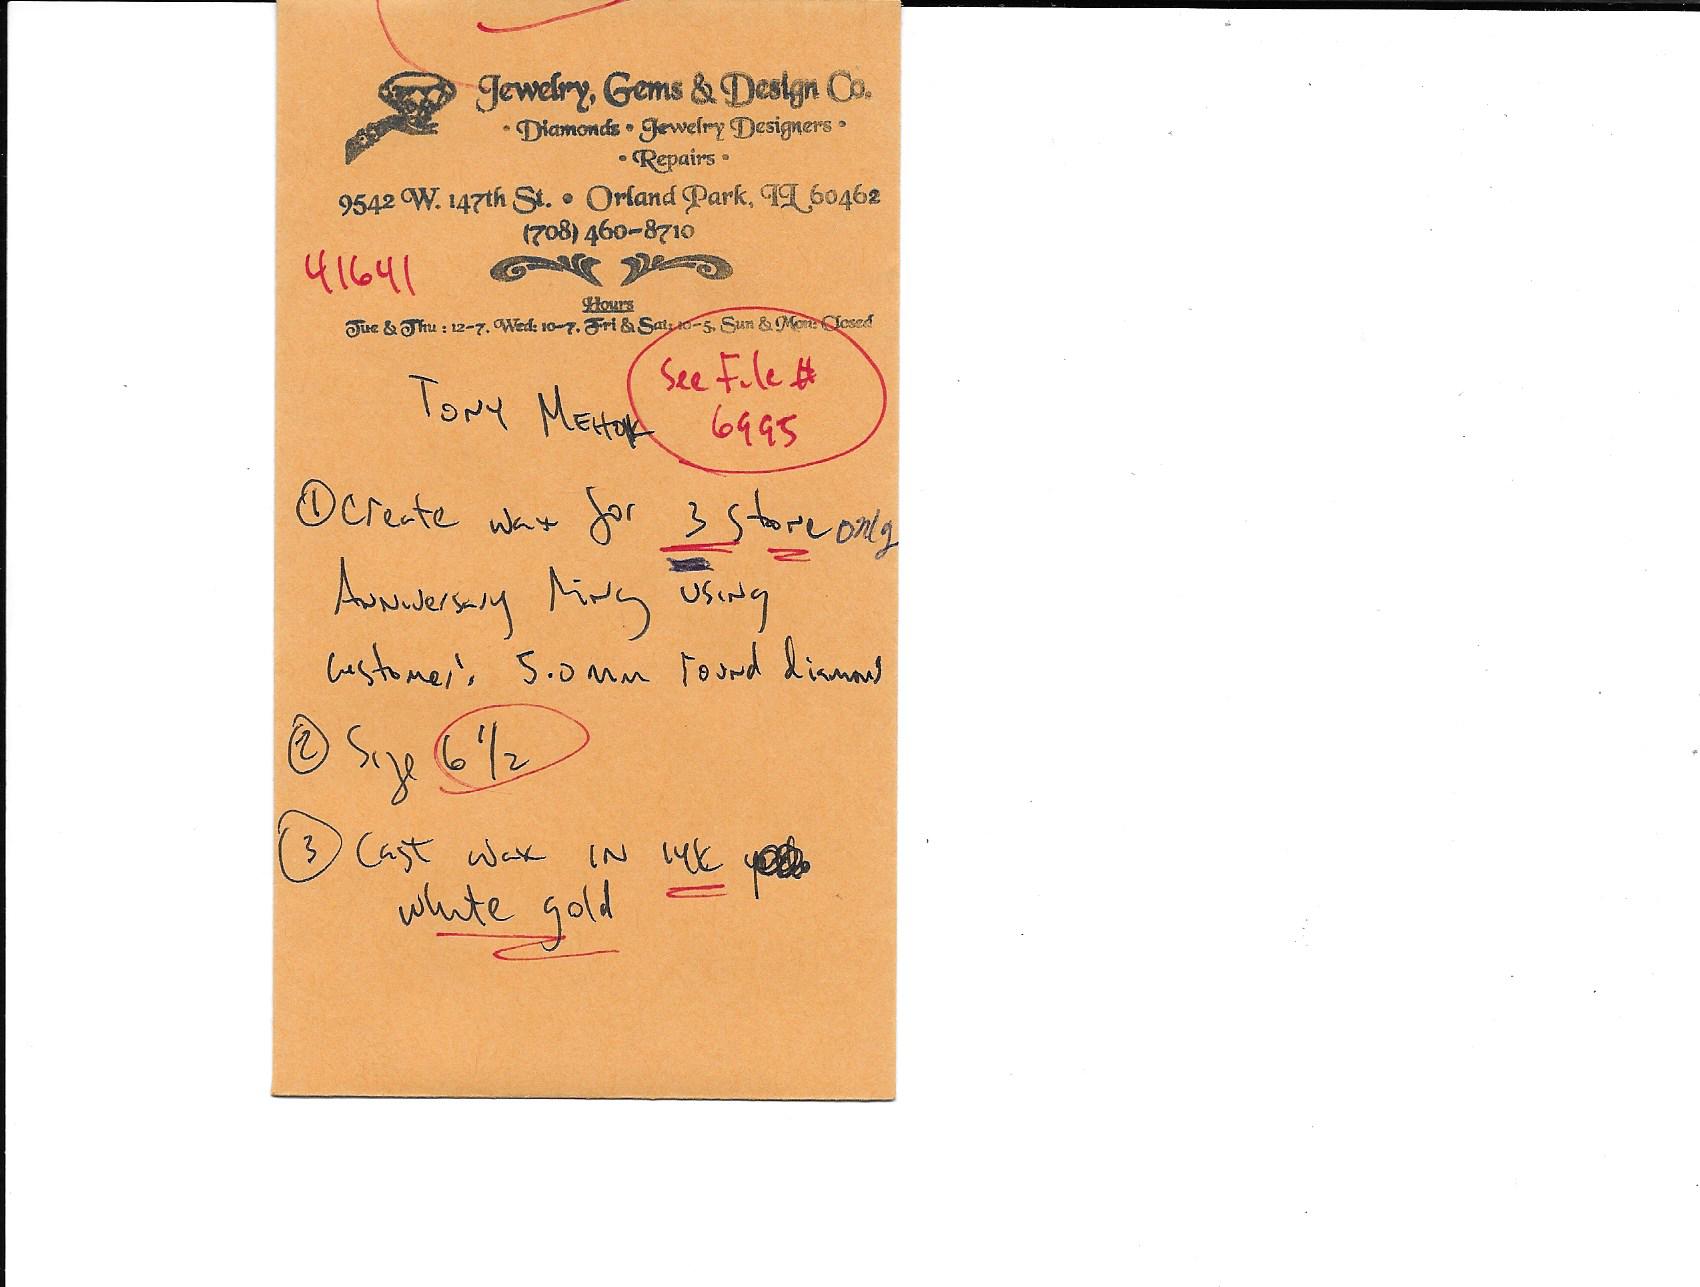 Jewelry, Gems & Design Co.
• Diamonds • Jewelry Designers •
• Repairs •
9542 W. 147th St. • Orland Park, IL 60462
(708) 460-8710
41641
Hours
Tue & Thu : 12-7, Wed: 10-7, Fri & Sat: 10-5, Sun & Mon: Closed
See File #
6995
TONY MEHOK
① Create wax for 3 Stone only
Anniversary Ring using
customer's 5.0 mm round diamond
② Size 6 1/2
③ Cast wax in 14K
white gold